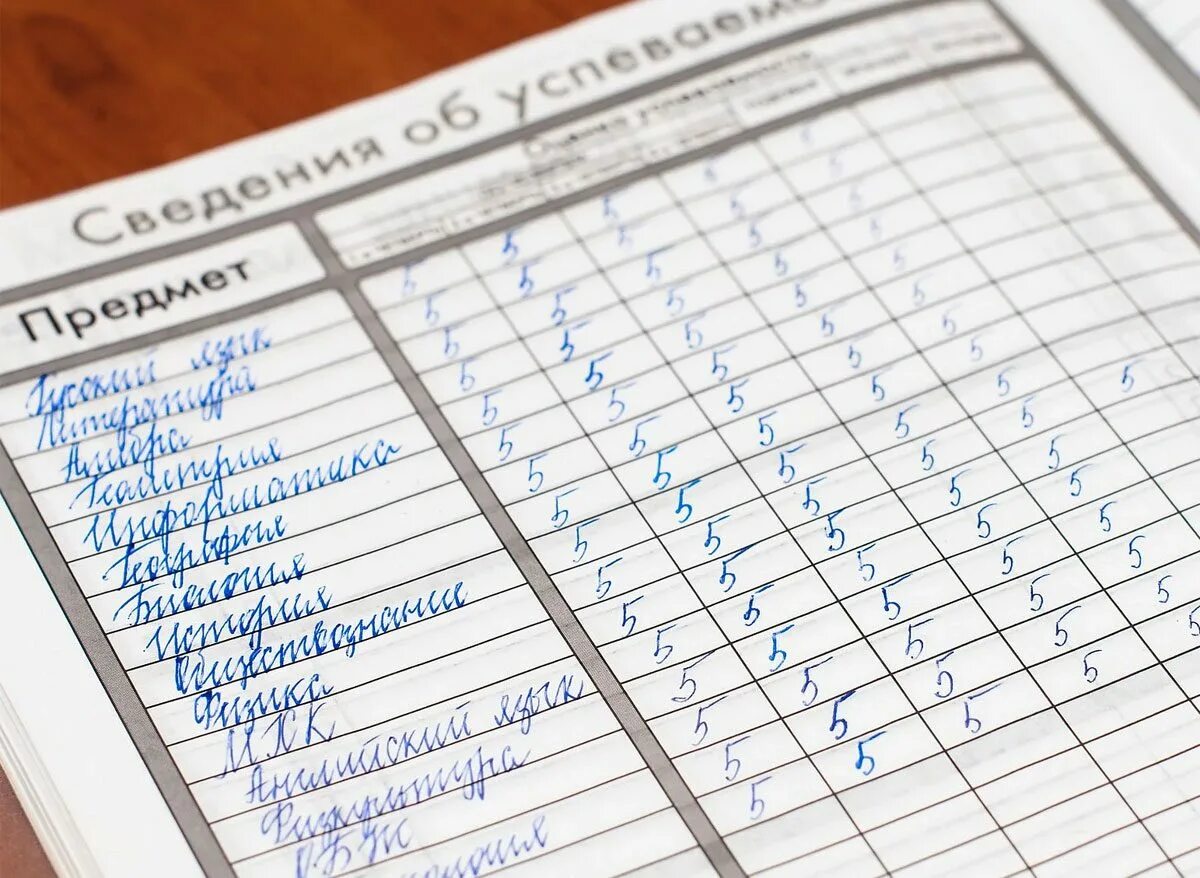 Сведения об успеваемо
Оценка успеваемости
Предмет
Русский язык 5 5 5 5 5
Литература 5 5 5 5 5
Алгебра 5 5 5 5 5
Геометрия 5 5 5 5 5
Информатика 5 5 5 5 5
География 5 5 5 5 5
Биология 5 5 5 5 5
История 5 5 5 5 5
Обществознание 5 5 5 5 5
Физика 5 5 5 5 5 5
МХК 5 5 5 5 5
Английский язык 5 5 5 5 5
Физкультура 5 5 5 5 5
ОБЖ 5 5 5 5 5
нология 5 5 5 5 5
5 5 5 5 5